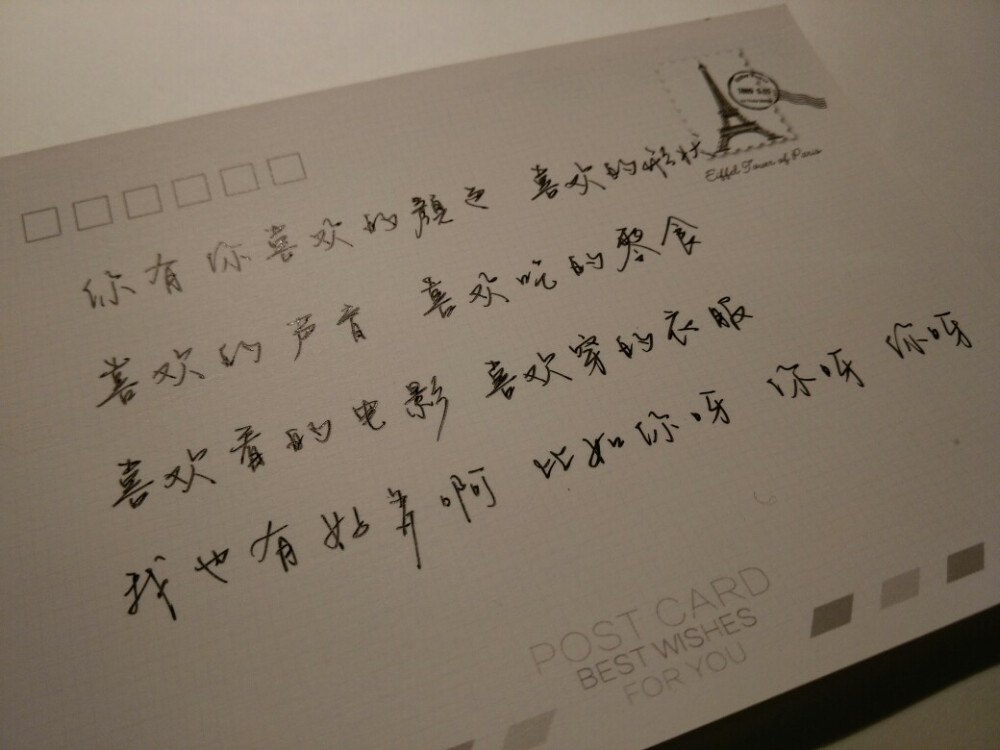 Eiffel Tower of Paris
你有你喜欢的颜色 喜欢的形状
喜欢的声音 喜欢吃的零食
喜欢看的电影 喜欢穿的衣服
我也有好多啊 比如你呀 你呀 你呀
POST CARD
BEST WISHES
FOR YOU